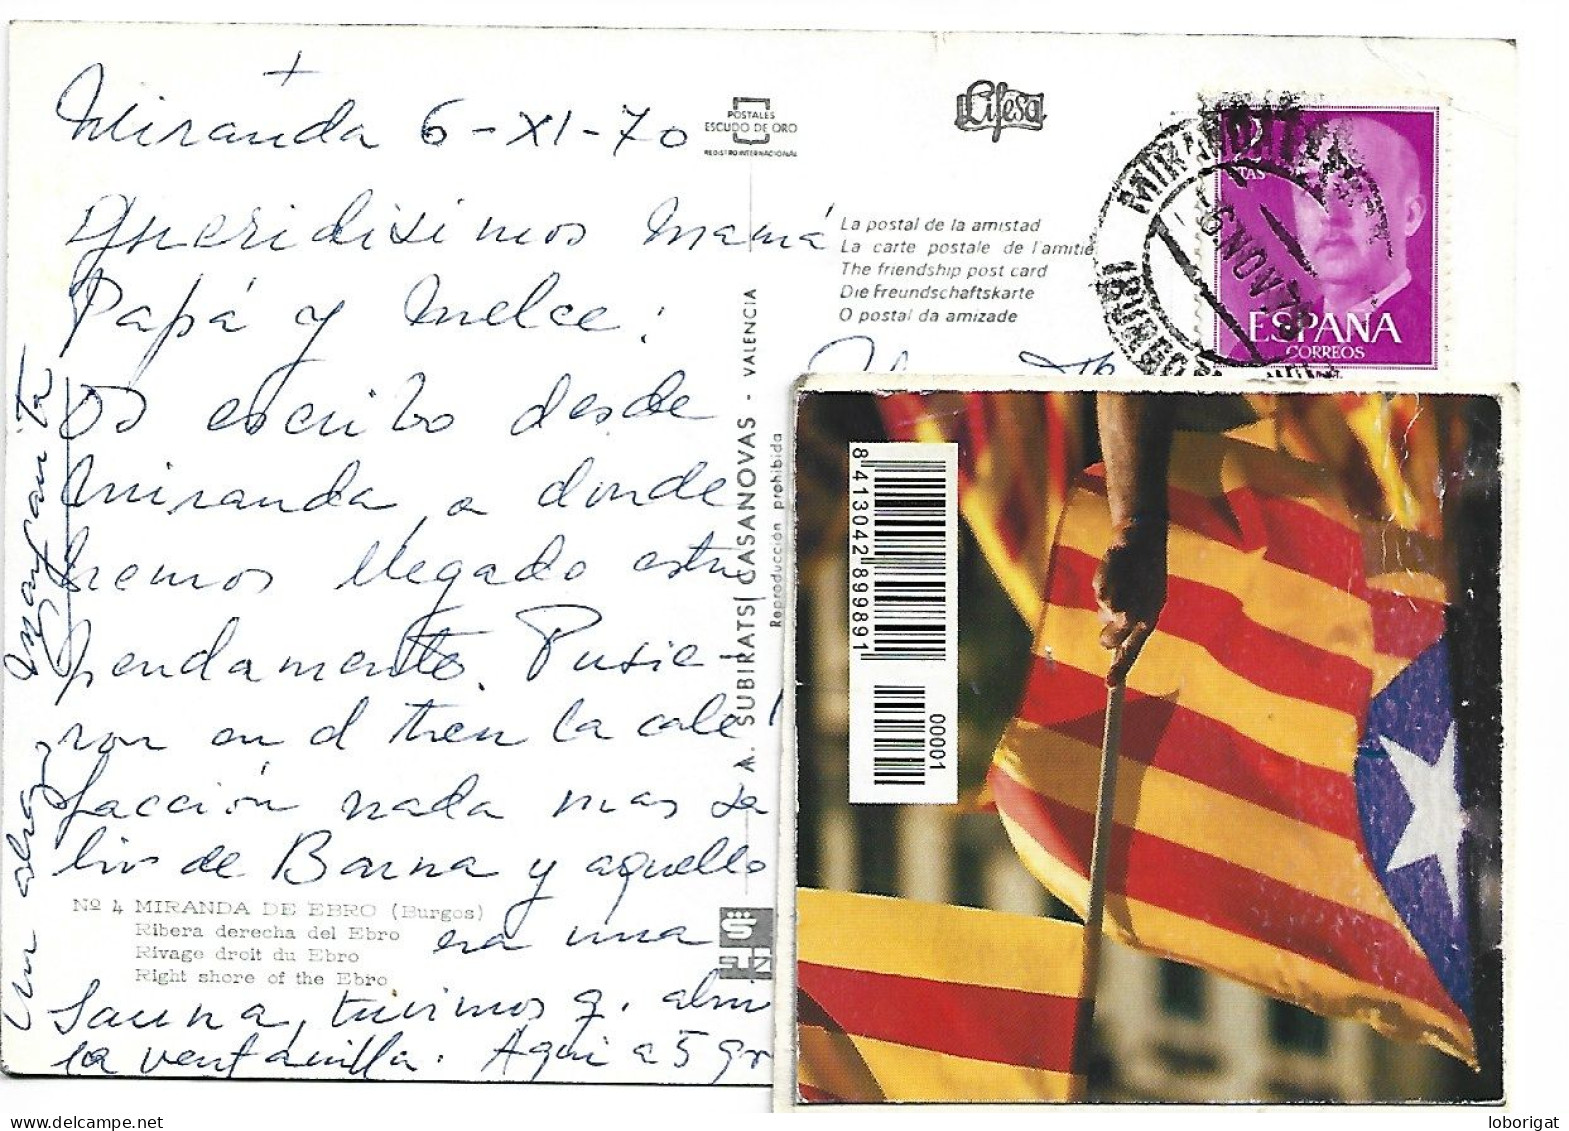 +
Miranda 6-XI-70
Queridisimos mamá
Papá y Melce:
Os escribo desde
Miranda, a donde
hemos llegado estu
pendamente. Pusie
ron en el tren la cale
facción nada mas sa
lir de Barna y aquello
era una
sauna, tuvimos q. abrir
la ventanilla. Aqui a 5 gr
Un abrazo
POSTALES
ESCUDO DE ORO
REGISTRO INTERNACIONAL
Cifesa
La postal de la amistad
La carte postale de l'amitie
The friendship post card
Die Freundschaftskarte
O postal da amizade
2
PTAS
ESPAÑA
CORREOS
MIRANDA
(BURGOS)
A. SUBIRATS CASANOVAS - VALENCIA
Reproducción prohibida
Nº 4 MIRANDA DE EBRO (Burgos)
Ribera derecha del Ebro
Rivage droit du Ebro
Right shore of the Ebro
8 413042 899891
00001
loborigat